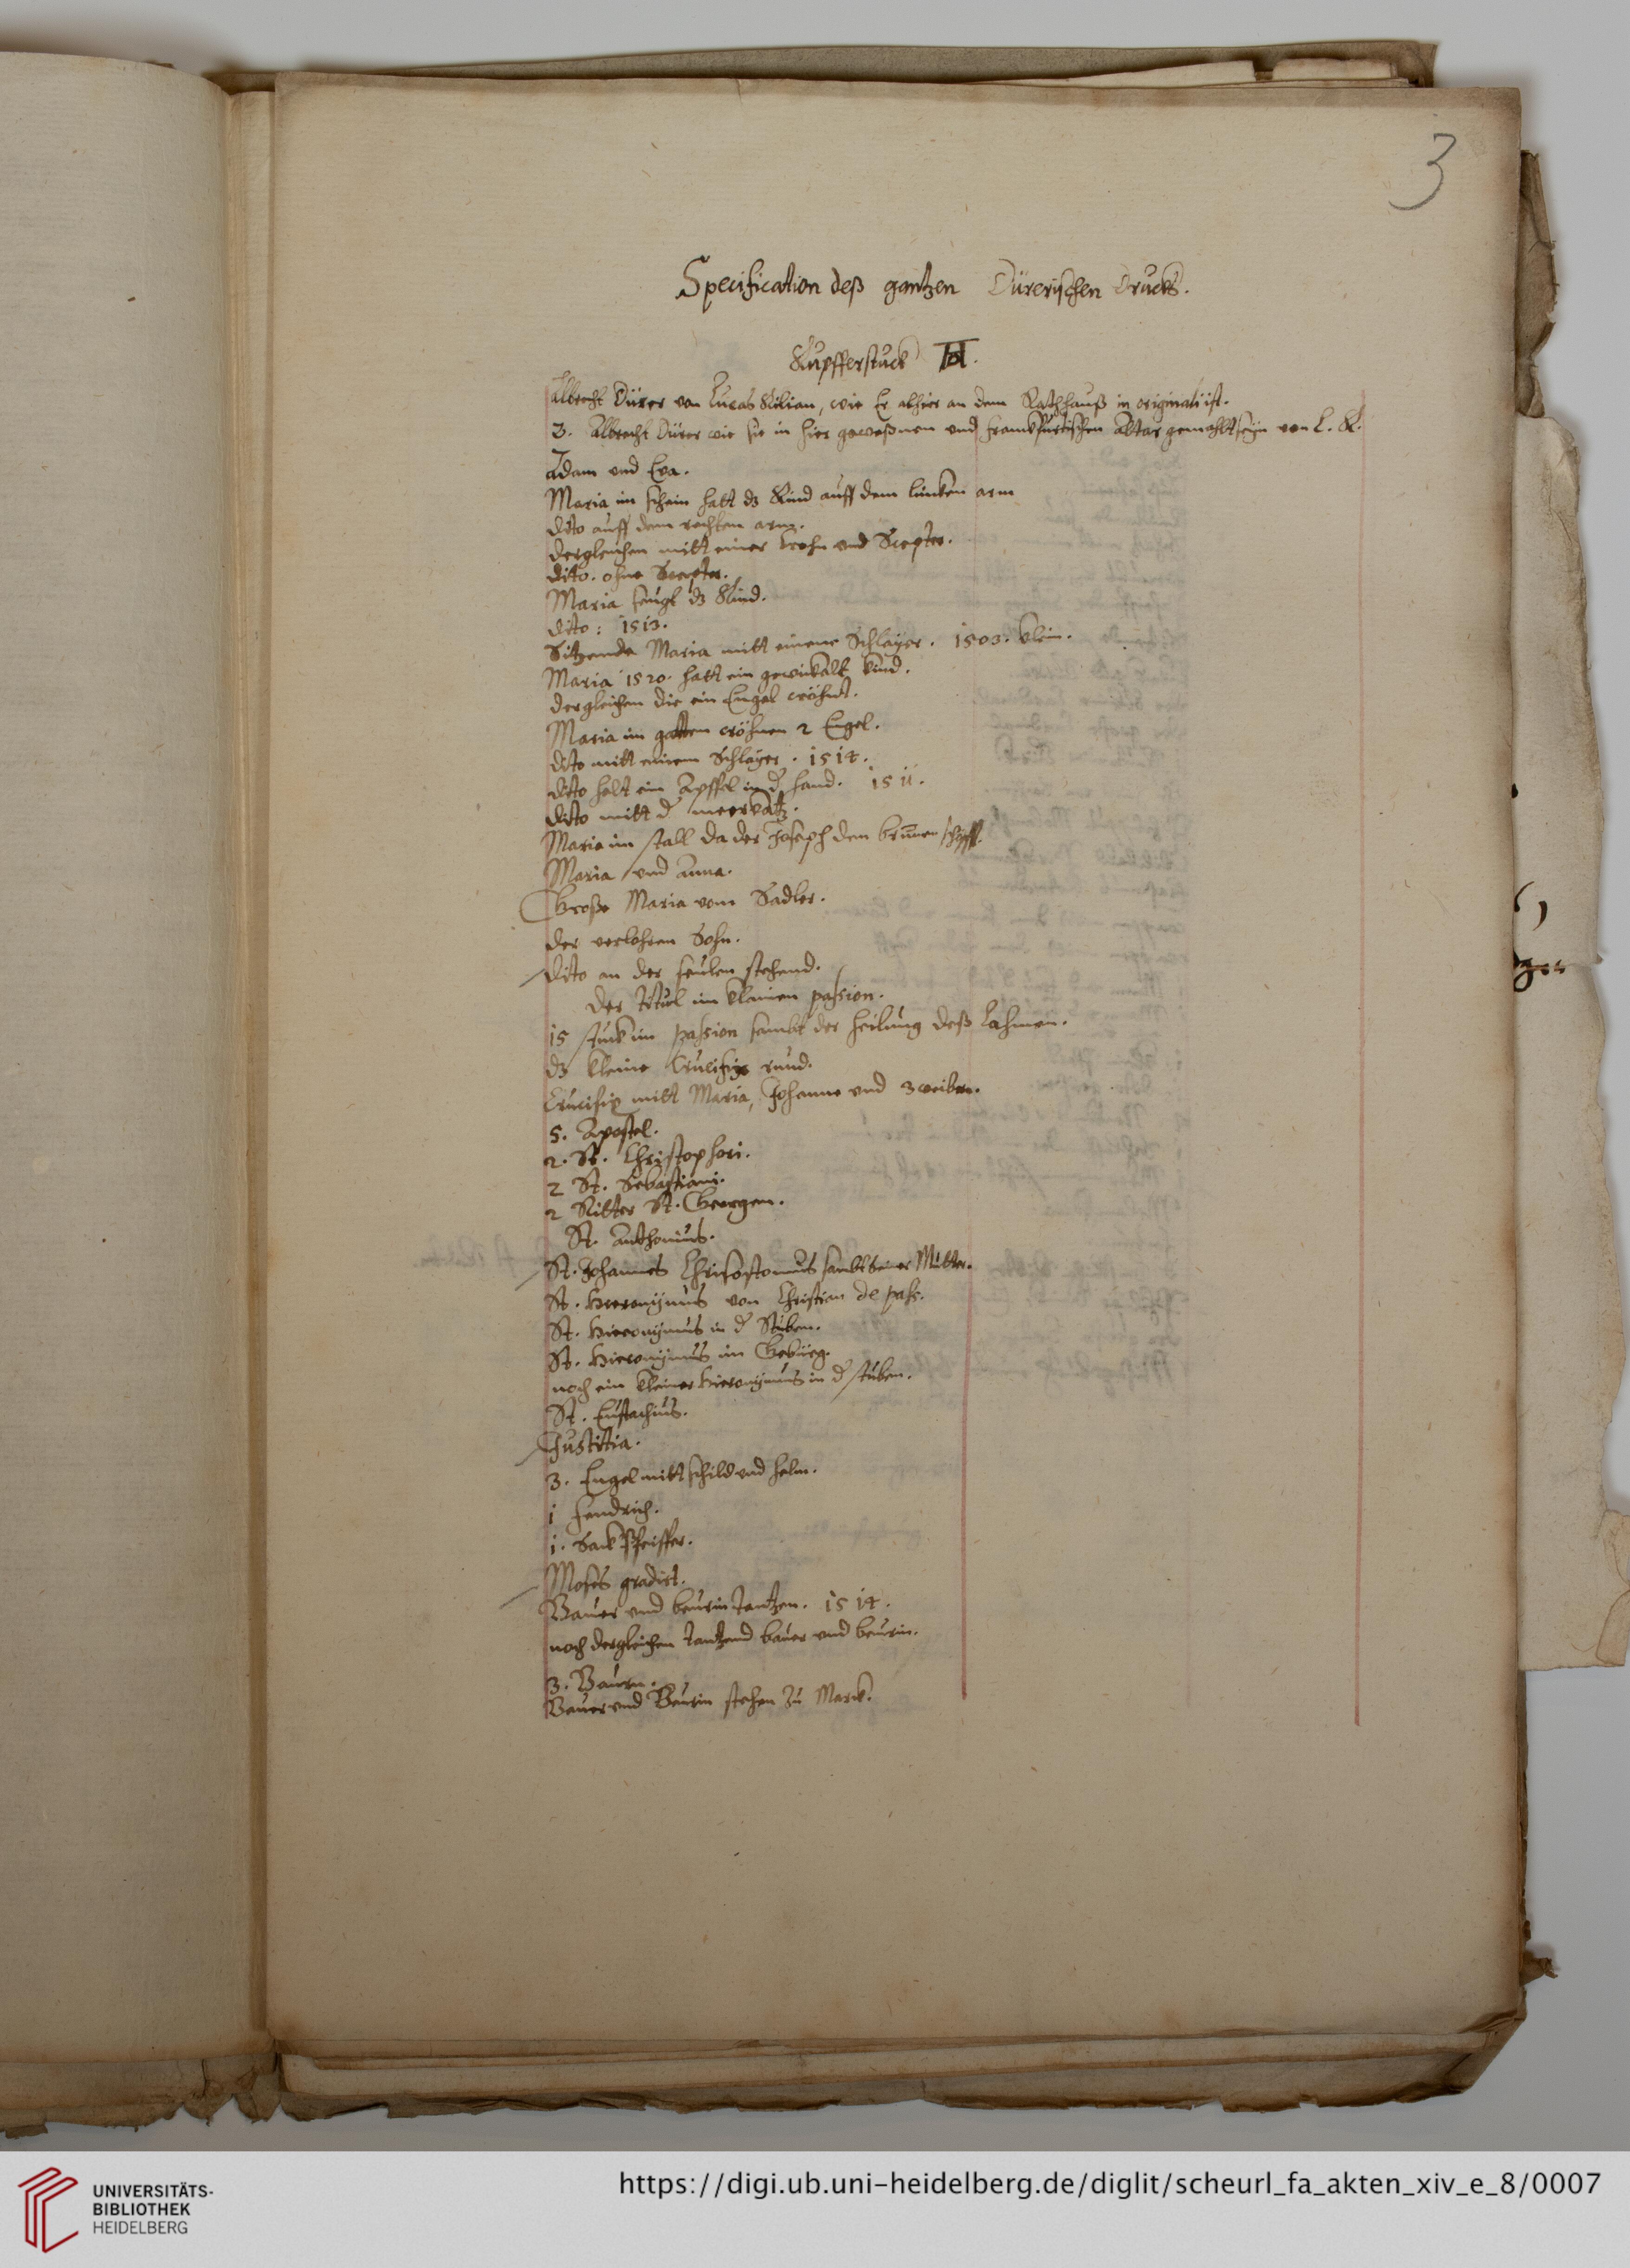 3
Specification deß gantzen Dürerischen Drucks.
Kupfferstuck
Albrecht Dürer von Lucas Kilian, wie Er alhier an dem Rathhauß in originali ist.
3. Albrecht Dürer wie sie in hier geweßnen und Franckfurtischen Altar gemahlt seyn von L. K.
Adam und Eva.
Maria im schein hatt dz Kind auff dem lincken arm
dito auff dem rechten arm.
dergleichen mitt einer Crohn und Scepter.
dito. ohne Scepter.
Maria seugt dz Kind.
ditto: 1513.
Sitzende Maria mitt einem Schlayer. 1503. klein.
Maria 1520. hatt ein gewickelt kind.
dergleichen die ein Engel cröhnt.
Maria im garten cröhnen 2 Engel.
dito mitt einem Schlayer. 1514.
ditto helt ein Apffel in d hand. 1511.
ditto mitt d meerkatz.
Maria im stall da der Joseph den brunnen schöpff.
Maria und Anna.
Große Maria vom Sadler.
der verlohren Sohn.
dito an der seulen stehend.
der Titul im kleinen passion.
15 stuck im passion sambt der heilung deß Lahmen.
dz kleine Crucifix rund.
Crucifix mitt Maria, Johanne und 3 weibern.
5. Apostel.
2. St. Christophori.
2 St. Sebastiani.
2 Ritter St. Georgen.
St. Anthonius.
St. Johannes Chrisostomus sambt seiner Mutter.
St. Hieronymus von Christian de pass.
St. Hieronymus in d Stuben.
St. Hieronymus im Gebürg.
noch ein kleiner Hieronymus in d stuben.
St. Eustachius.
Justitia.
3. Engel mitt schild und helm.
1 Fendrich.
1. Sack Pfeiffer.
Moses gradirt.
Bauer und beurin tantzen. 1514.
noch dergleichen tantzend bauer und beurin.
3. Bauern.
Bauer und Beurin stehen zu Marck.
UNIVERSITÄTS-
BIBLIOTHEK
HEIDELBERG
https://digi.ub.uni-heidelberg.de/diglit/scheurl_fa_akten_xiv_e_8/0007